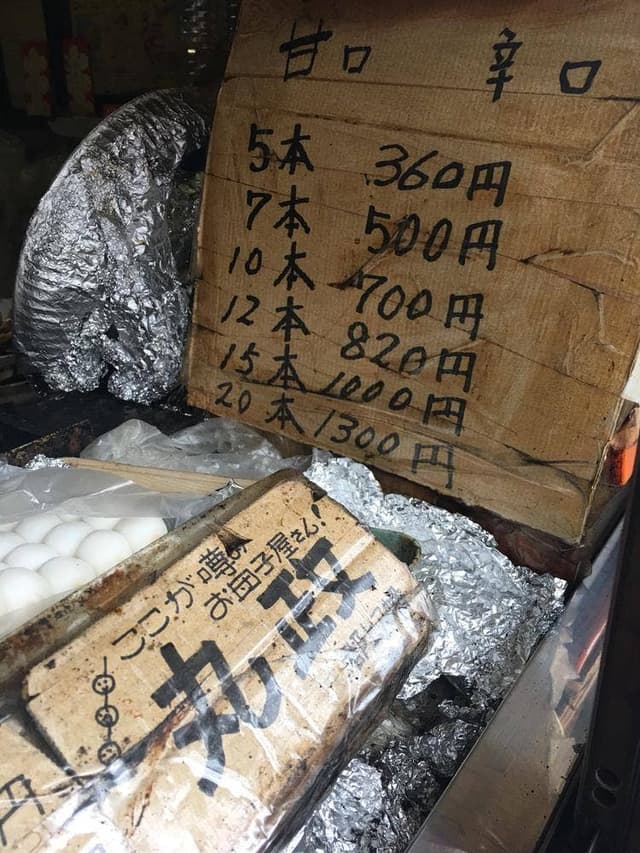 甘口 辛口
5本 360円
7本 500円
10本 700円
12本 820円
15本 1000円
20本 1300円
ここが噂の
お団子屋さん!
丸政
円